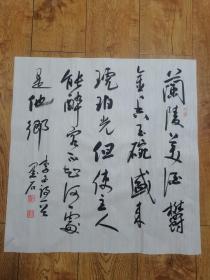 蘭陵美酒鬱
金香玉碗盛来
琥珀光但使主人
能醉客不知何處
是他鄉 李白詩一首
墨石